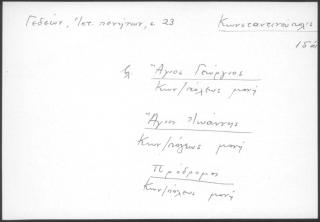 Γεδεών, Ἱστ. πενήτων, σ 23
Κωνσταντινούπολις
Ἅγιος Γεώργιος
Κων/πόλεως μονή
Ἅγιος Ἰωάννης
Κων/πόλεως μονή
Πρόδρομος
Κων/πόλεως μονή